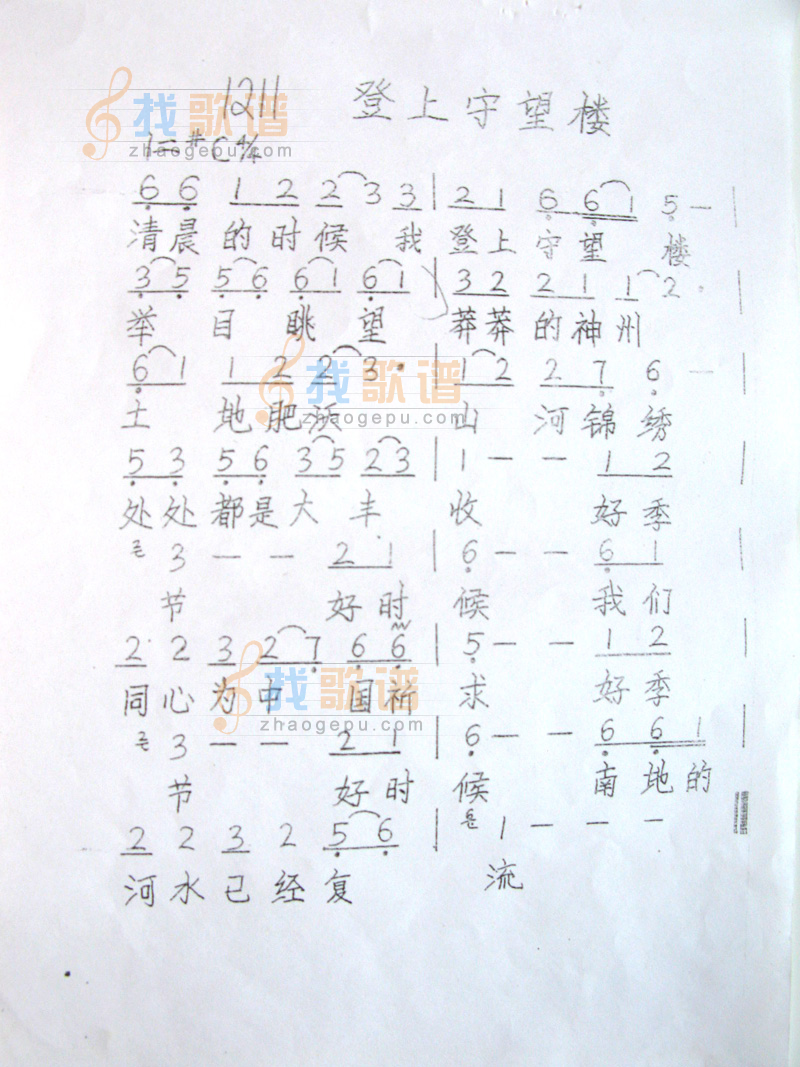 1211 登上守望楼
1=#C 4/4
6 6 1 2 2 3 3 | 2 1 6 6 1 5 — |
清晨的时候我登上守望楼
3 5 5 6 6 1 6 1 | 3 2 2 1 1 2 . |
举目眺望莽莽的神州
6 1 1 2 2 3 . | 1 2 2 7 6 — |
土地肥沃山河锦绣
5 3 5 6 3 5 2 3 | 1 — — 1 2 |
处处都是大丰收好季
3 — — 2 1 | 6 — — 6 1 |
节好时候我们
2 2 3 2 7 6 6 | 5 — — 1 2 |
同心为中国祈求好季
3 — — 2 1 | 6 — — 6 6 1 |
节好时候南地的
2 2 3 2 5 6 | 1 — — —
河水已经复流
找歌谱
zhaogepu.com
找歌谱
zhaogepu.com
找歌谱
zhaogepu.com
找歌谱
zhaogepu.com